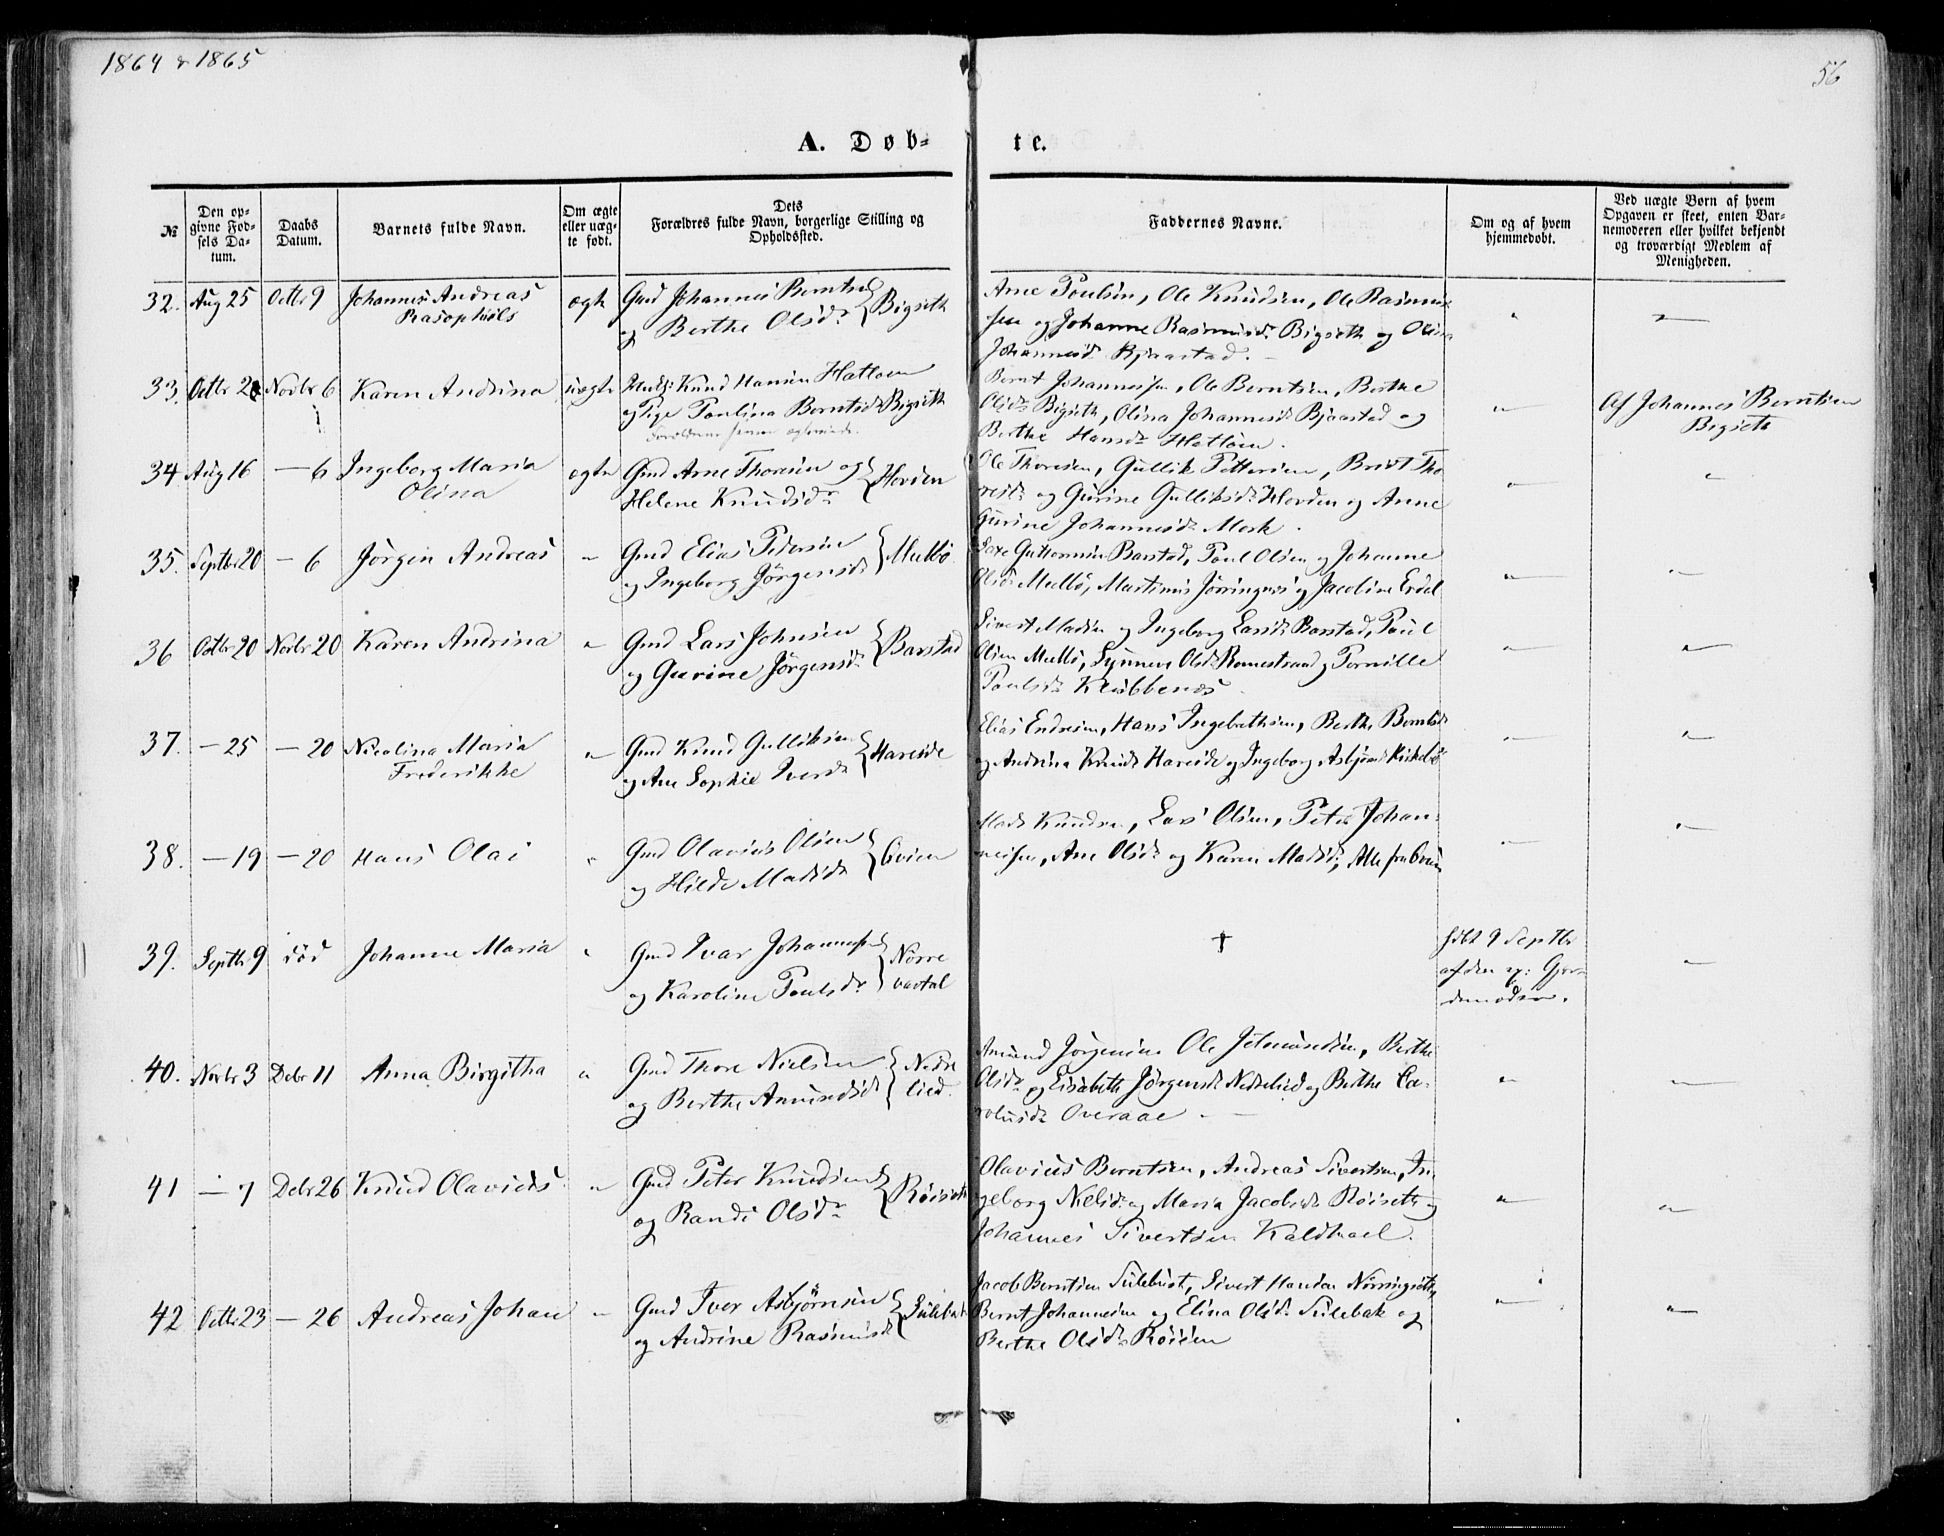 1864 & 1865
56
A. Døb-
te.
№
Den op-
givne Fød-
sels Da-
tum.
Daabs
Datum.
Barnets fulde Navn.
Om ægte
eller uæg-
te født.
Dets
Forældres fulde Navn, borgerlige Stilling og
Opholdssted.
Faddernes Navne.
Om og af hvem
hjemmedøbt.
Ved uægte Børn af hvem
Opgaven er skeet, enten Bar-
nemoderen eller hvilket bekjendt
og troværdigt Medlem af
Menigheden.
32. Aug 25 Octbr 9 Johannes Andreas ægte Gmd Johannes Berntsen Bigseth
og Berthe Olsdr
Arne Poulsen, Ole Knudsen, Ole Rasmus-
sen og Johanne Rasmusdr Bigseth og Olina
Johannesdr Bjaastad.
33. Octbr Novbr 6 Karen Andrina uægte Knud Hansen Hatløen
og Pige Paulina Berntsdr Bigseth
Bernt Johannessen, Ole Berntsen, Berthe
Olsdr Bigseth, Olina Johannesdr Bjaastad og
Berthe Hansdr Hatløen.
Af Johannes Berntsen
Bigseth
34 Aug 16 — 6 Ingeborg Maria
Olina
ægte Gmd Arne Thoresen og Hovden
Helene Knudsdr
Ole Thoresen, Gullik Pettersen, Brit Tho-
resdr og Gurine Gulliksdr Hovden og Anne
Gurine Johannesdr Mork.
35. Septbr 20 — 6 Jörgen Andreas " Gmd Elias Pedersen Mulbö
og Ingeborg Jörgensdr
Guttormsen Barstad, Poul Olsen og Johanne
Olsdr Mulbö, Martinus og Jacobine Erdal
36 Octbr 20 Novbr 20 Karen Andrina " Gmd Lars Johnsen Barstad
og Gurine Jörgensdr
Sivert Madsen og Ingeborg Larsdr Barstad, Poul
Olsen Mulbö, Synneve Olsdr Romestrand og Pernille
Poulsdr Klubbenes
37. — 25 — 20 Nicolina Maria
Frederikke
" Gmd Knud Gulliksen Hareide
og Ane Sophie Iversdr
Elias Endresen, Hans Ingebrethsen, Berthe Berntsdr
og Andrina Knudsdr Hareide og Ingeborg Asbjörnsdr
38. — 19 — 20 Hans Olai " Gmd Olavius Olsen Qvien
og Hilde Madsdr
Mads Knudsen, Lars Olsen, Peter Johan-
nessen, Ane Olsdr og Karen Madsdr, Alle fra Qvien
39. Septbr 9 död Johanne Maria " Gmd Ivar Johannessen Nörre
og Karoline Poulsdr vartal
†
hdbt 9 Septbr
af den ex: Gjor-
demoder.
40. Novbr 3 Debr 11 Anna Birgitha " Gmd Thore Nielsen Nedre
og Berthe Amundsdr lied.
Amund Jörgensen Ole Jetmundsen, Berthe
Olsdr og Elisabeth Jörgensdr Nedrelied og Berthe Ca-
rolusdr Overaae
41 — 7 Debr 26 Knud Olavius " Gmd Peter Knudsen Röiseth
og Randi Olsdr
Olavius Berntsen, Andreas Sivertsen, In-
geborg Nielsdr og Maria Jacobsdr Röiseth og
Johannes Sivertsen Kaldhael.
42 Octbr 23 — 26 Andreas Johan " Gmd Iver Asbjørnsen Sulebak
og Andrine Rasmusdr
Jacob Berntsen Sulebust, Sivert Hansen Nörringseth,
Bernt Johannessen og Elina Olsdr Sulebak og
Berthe Olsdr Röisen